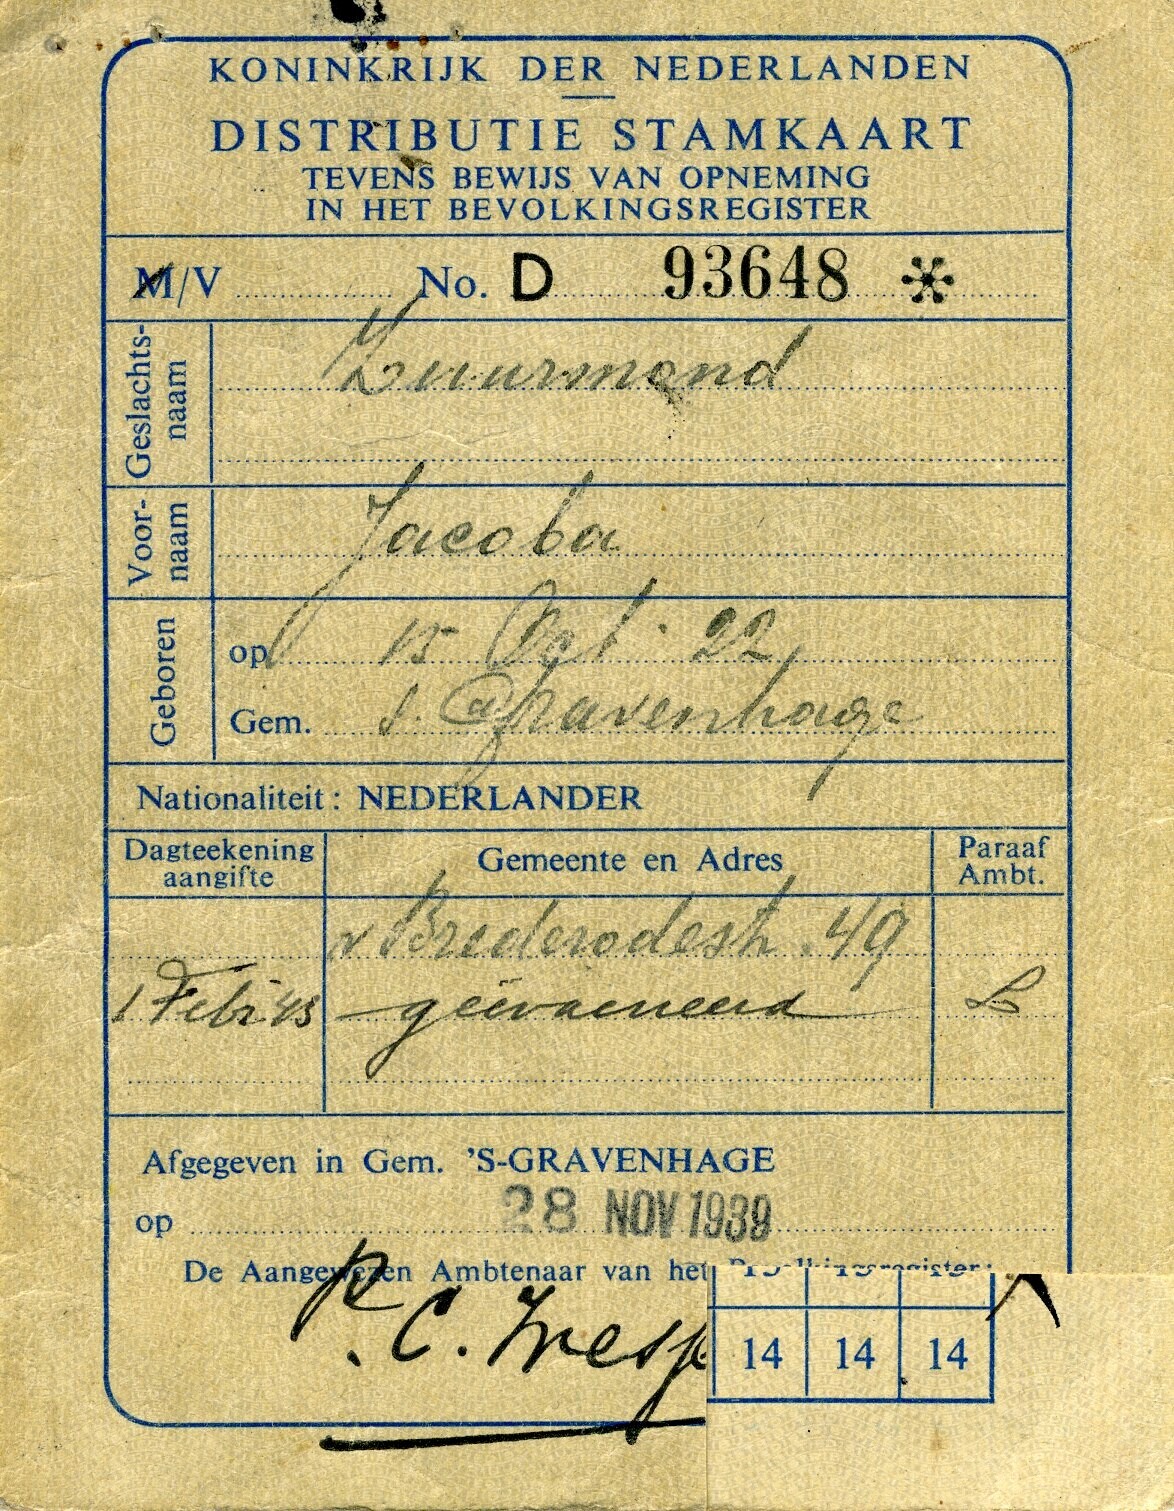 KONINKRIJK DER NEDERLANDEN
DISTRIBUTIE STAMKAART
TEVENS BEWIJS VAN OPNEMING
IN HET BEVOLKINGSREGISTER
M/V No. D 93648 *
Geslachts-
naam
Zuurmond
Voor-
naam
Jacoba
Geboren
op 15 Oct. 22
Gem. s. Gravenhage
Nationaliteit: NEDERLANDER
Dagteekening
aangifte
Gemeente en Adres
Paraaf
Ambt.
v Brederodestr. 49
1 Febr 43 geëvacueerd
Afgegeven in Gem. 'S-GRAVENHAGE
op 28 NOV 1939
De Aangewezen Ambtenaar van het Bevolkingsregister:
14 14 14